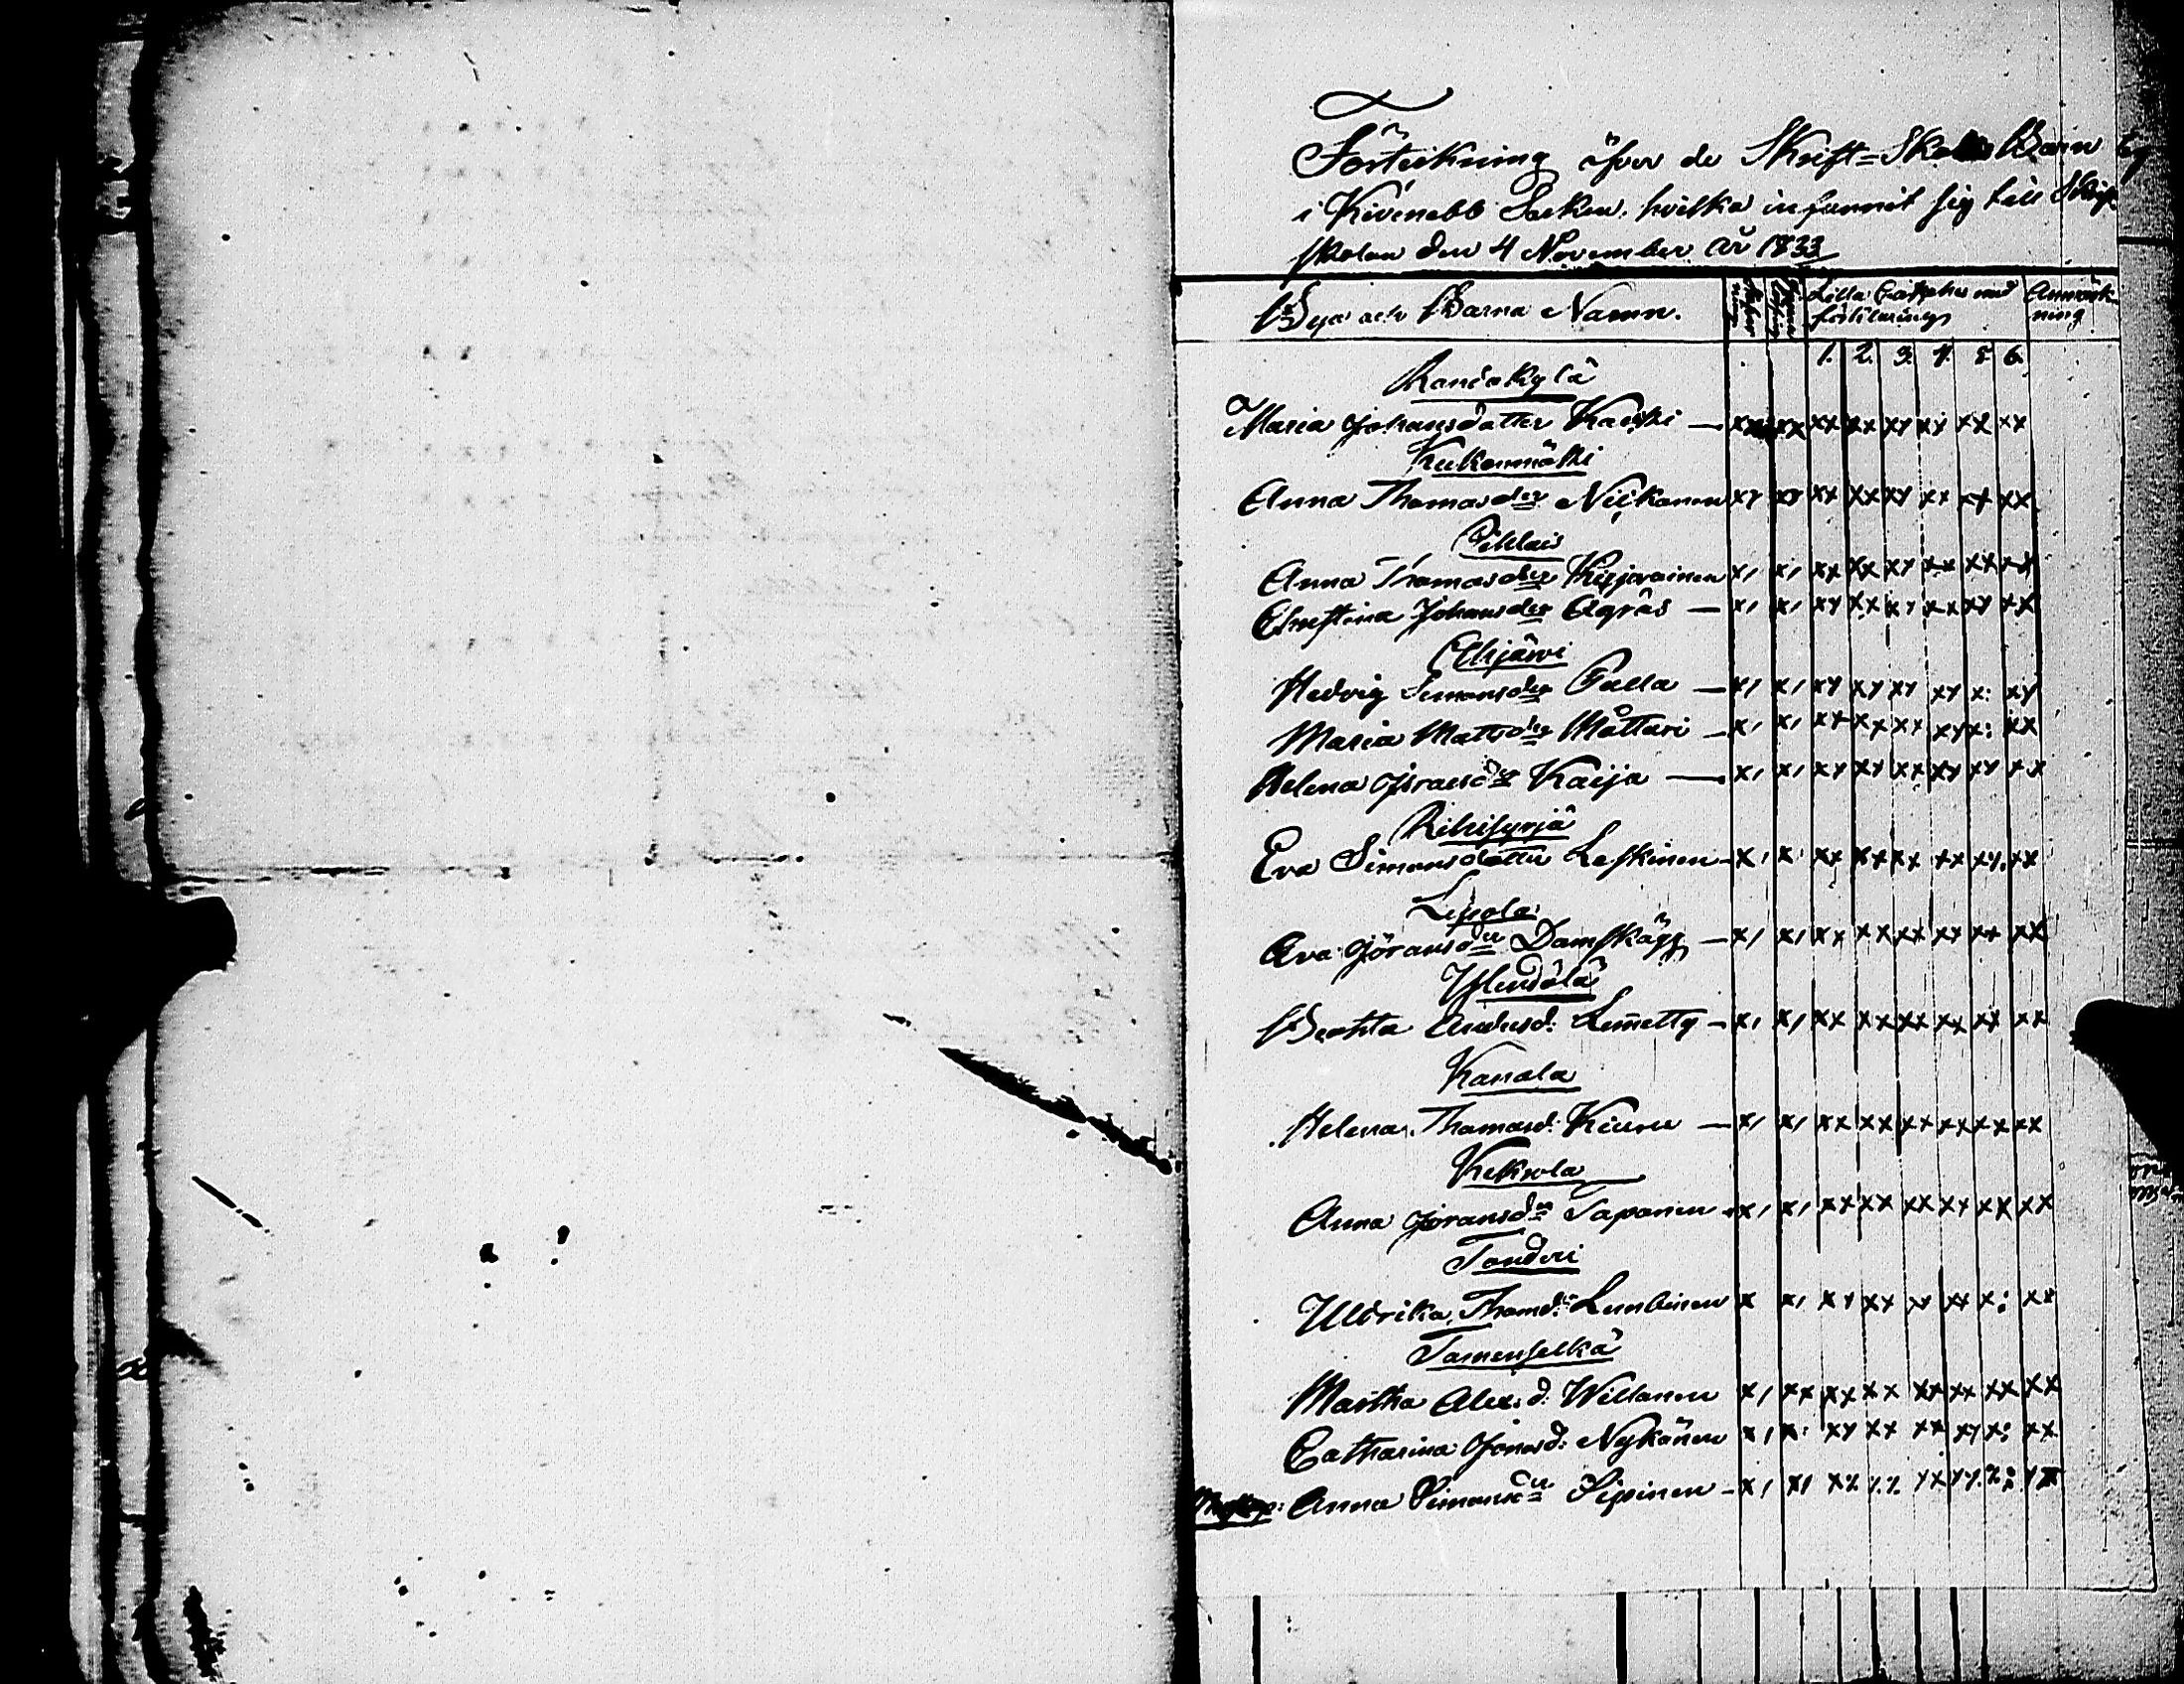 Förteikning öfver de Skrift=Skole Barn
i Kivenebb Socken, hvilka infunnit sig till Skrift
skolan den 4 November År 1833
Bya och Barna Namn.
Lilla Catches med
förklaring
Anmärk
ning
1. 2. 3. 4. 5. 6.
Randakylä
Maria Johansdotter Kaukki — xx xx xx xx xy xy xx xx
Kukonmäkki
Anna Thomasdr Niikonen xy xy xx xx xy xx xx xx
Pihlais
Anna Thomasdr Kirjavainen x, x, xx xx xy xx xx xx
Christina Johansdr Agräs — x, x, xy xx xy xx xy xx
Ahjärvi
Hedvig Simonsdr Palla — x, x, xy xy xy xy x: xy
Maria Matsdr Måttari — x, x, xx xx xx xy x: xx
Helena Göransdr Kaija — x, x, xy xy xx xy xy xx
Rihisyrjä
Eva Simonsdotter Leskinen — x, x, xx xx xx xx xy. xx
Lipola
Eva Göransdr Damskägg — x, x, xx xx xx xy xx xx
Ylendälä
Beatta Andersd: Lemetty — x, x, xx xx xx xx xx xx
Kanala
Helena Thomasd: Kiuru — x, x, xx xx xx xx xx xx
Kekrola
Anna Göransdr Taponen x, x, xx xx xx xy xx xx
Tonderi
Uldrika Thomdr Lumbinen x x, xy xx xy xx x: xx
Tamenselkä
Martha Alex.d: Willanen x, xx xx xx xx xx xx xx
Catharina Jonasd: Nykänen x, x, xy xx xx xy x: xx
Anna Simonsdr Sipinen — x, x,